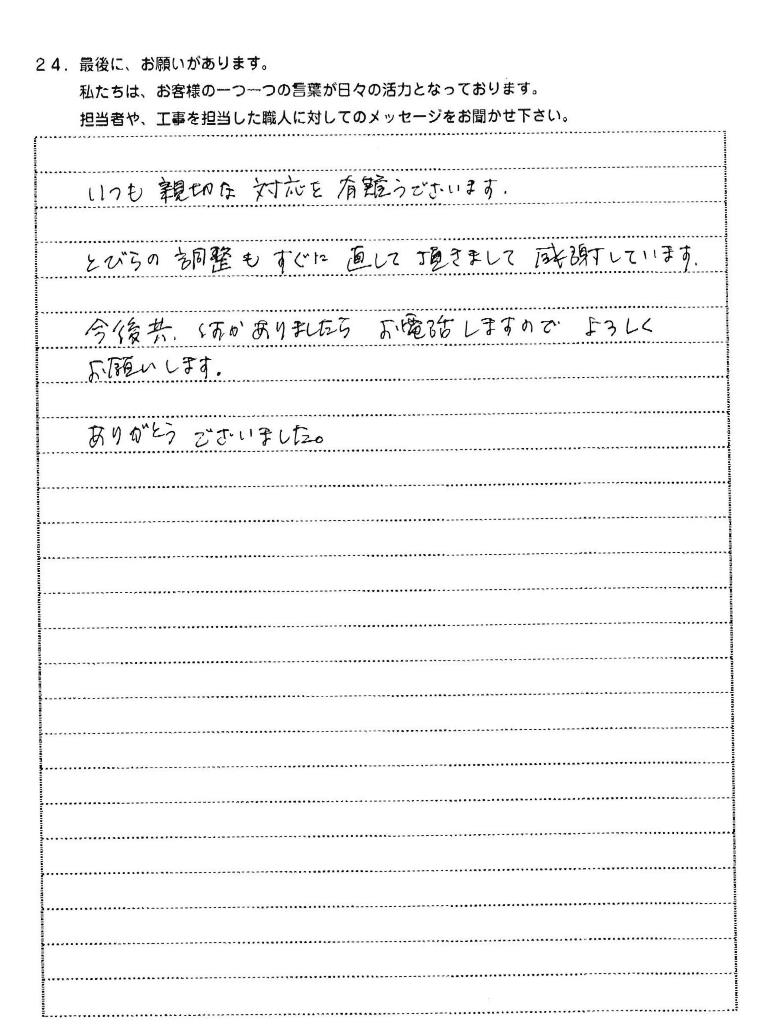 24. 最後に、お願いがあります。
私たちは、お客様の一つ一つの言葉が日々の活力となっております。
担当者や、工事を担当した職人に対してのメッセージをお聞かせ下さい。
いつも 親切な 対応を 有難うございます.
とびらの 調整も すぐに 直して 頂きまして 感謝しています.
今後共、何かありましたら お電話しますので よろしく
お願いします.
ありがとう ございました。